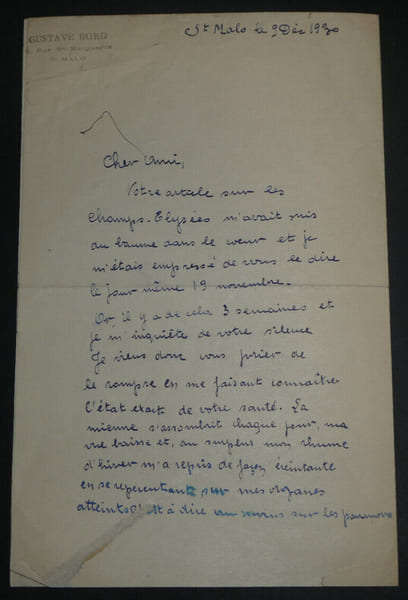 GUSTAVE BORD
Rue Ste Marguerite
St MALO
St Malo le 9 Déc 1930
Cher Ami,
Votre article sur les
Champs-Elysées m'avait mis
du baume dans le cœur et je
m'étais empressé de vous le dire
le jour même 19 novembre.
Or, il y a de cela 3 semaines et
je m'inquiète de votre silence
Je viens donc vous prier de
le rompre en me faisant connaître
l'état exact de votre santé. La
mienne s'assombrit chaque jour, ma
vue baisse et, au surplus mon rhume
d'hiver m'a repris de façon éreintante
en se repercutant sur mes organes
atteints c'est à dire au moins sur les poumons